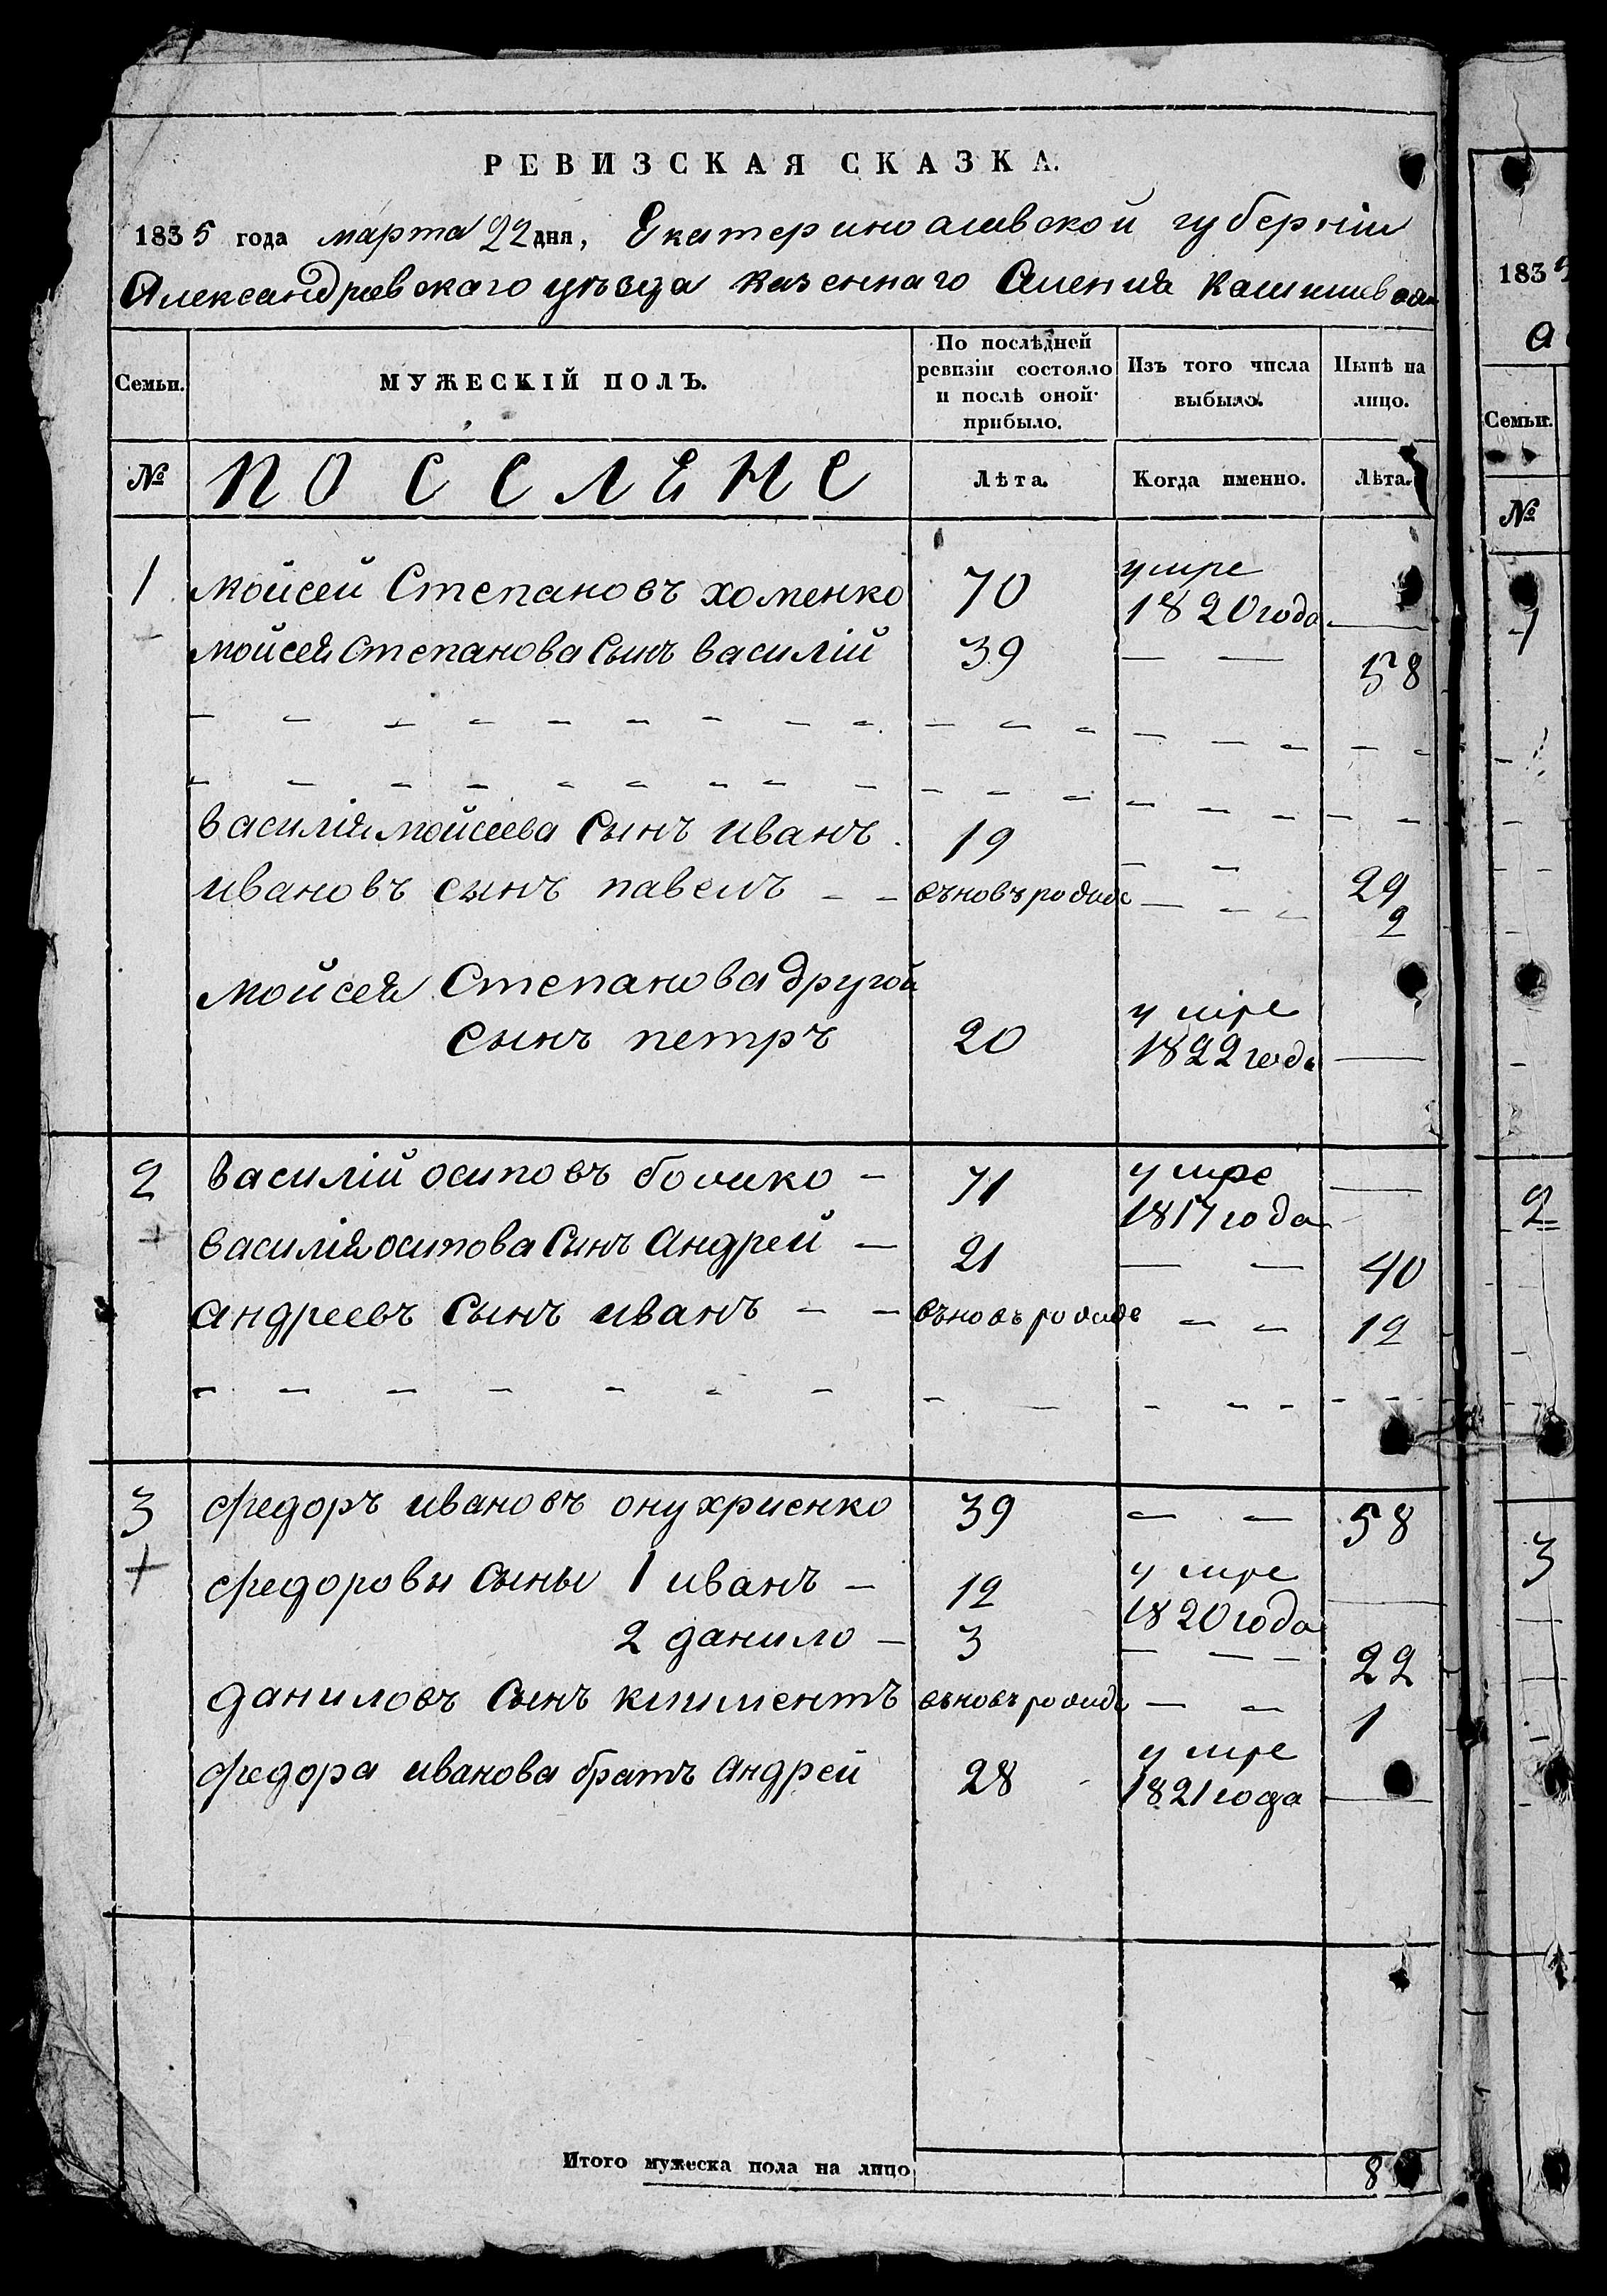 РЕВИЗСКАЯ СКАЗКА.
1835 года марта 22 дня, Екатериносливской губернiи
Александровскаго уѣзда казеннаго Селения
Семьи. МУЖЕСКІЙ ПОЛЪ. По послѣдней ревизіи состояло и послѣ оной прибыло. Изъ того числа выбыло. Нынѣ на лицо.
№ ПОСЕЛЕНЕ Лѣта. Когда именно. Лѣта.
1 мойсей Степановъ хоменко 70 умре 1820 года —
мойсея Степанова Сынъ василій 39 — — 58
василия мойсеева Сынъ иванъ 19 — — 29
ивановъ сынъ павелъ — — въновъ родиде — — — 2
мойсея Степанова другой
Сынъ петръ 20 умре 1822 года —
2 василій осиповъ — 71 умре 1817 года —
василия осипова Сынъ Андрей — 21 — — 40
андреевъ Сынъ иванъ — — въновъ родиде — — 12
3 федоръ ивановъ онухриенко 39 — — 58
федоровы Сыны 1 иванъ — 12 умре 1820 года —
2 данило — 3 — — — 22
даниловъ Сынъ климентъ въновъ родиде — — 1
федора иванова братъ андрей 28 умре 1821 года —
Итого мужеска пола на лицо 8
1835
Семьи.
№
1
2
3